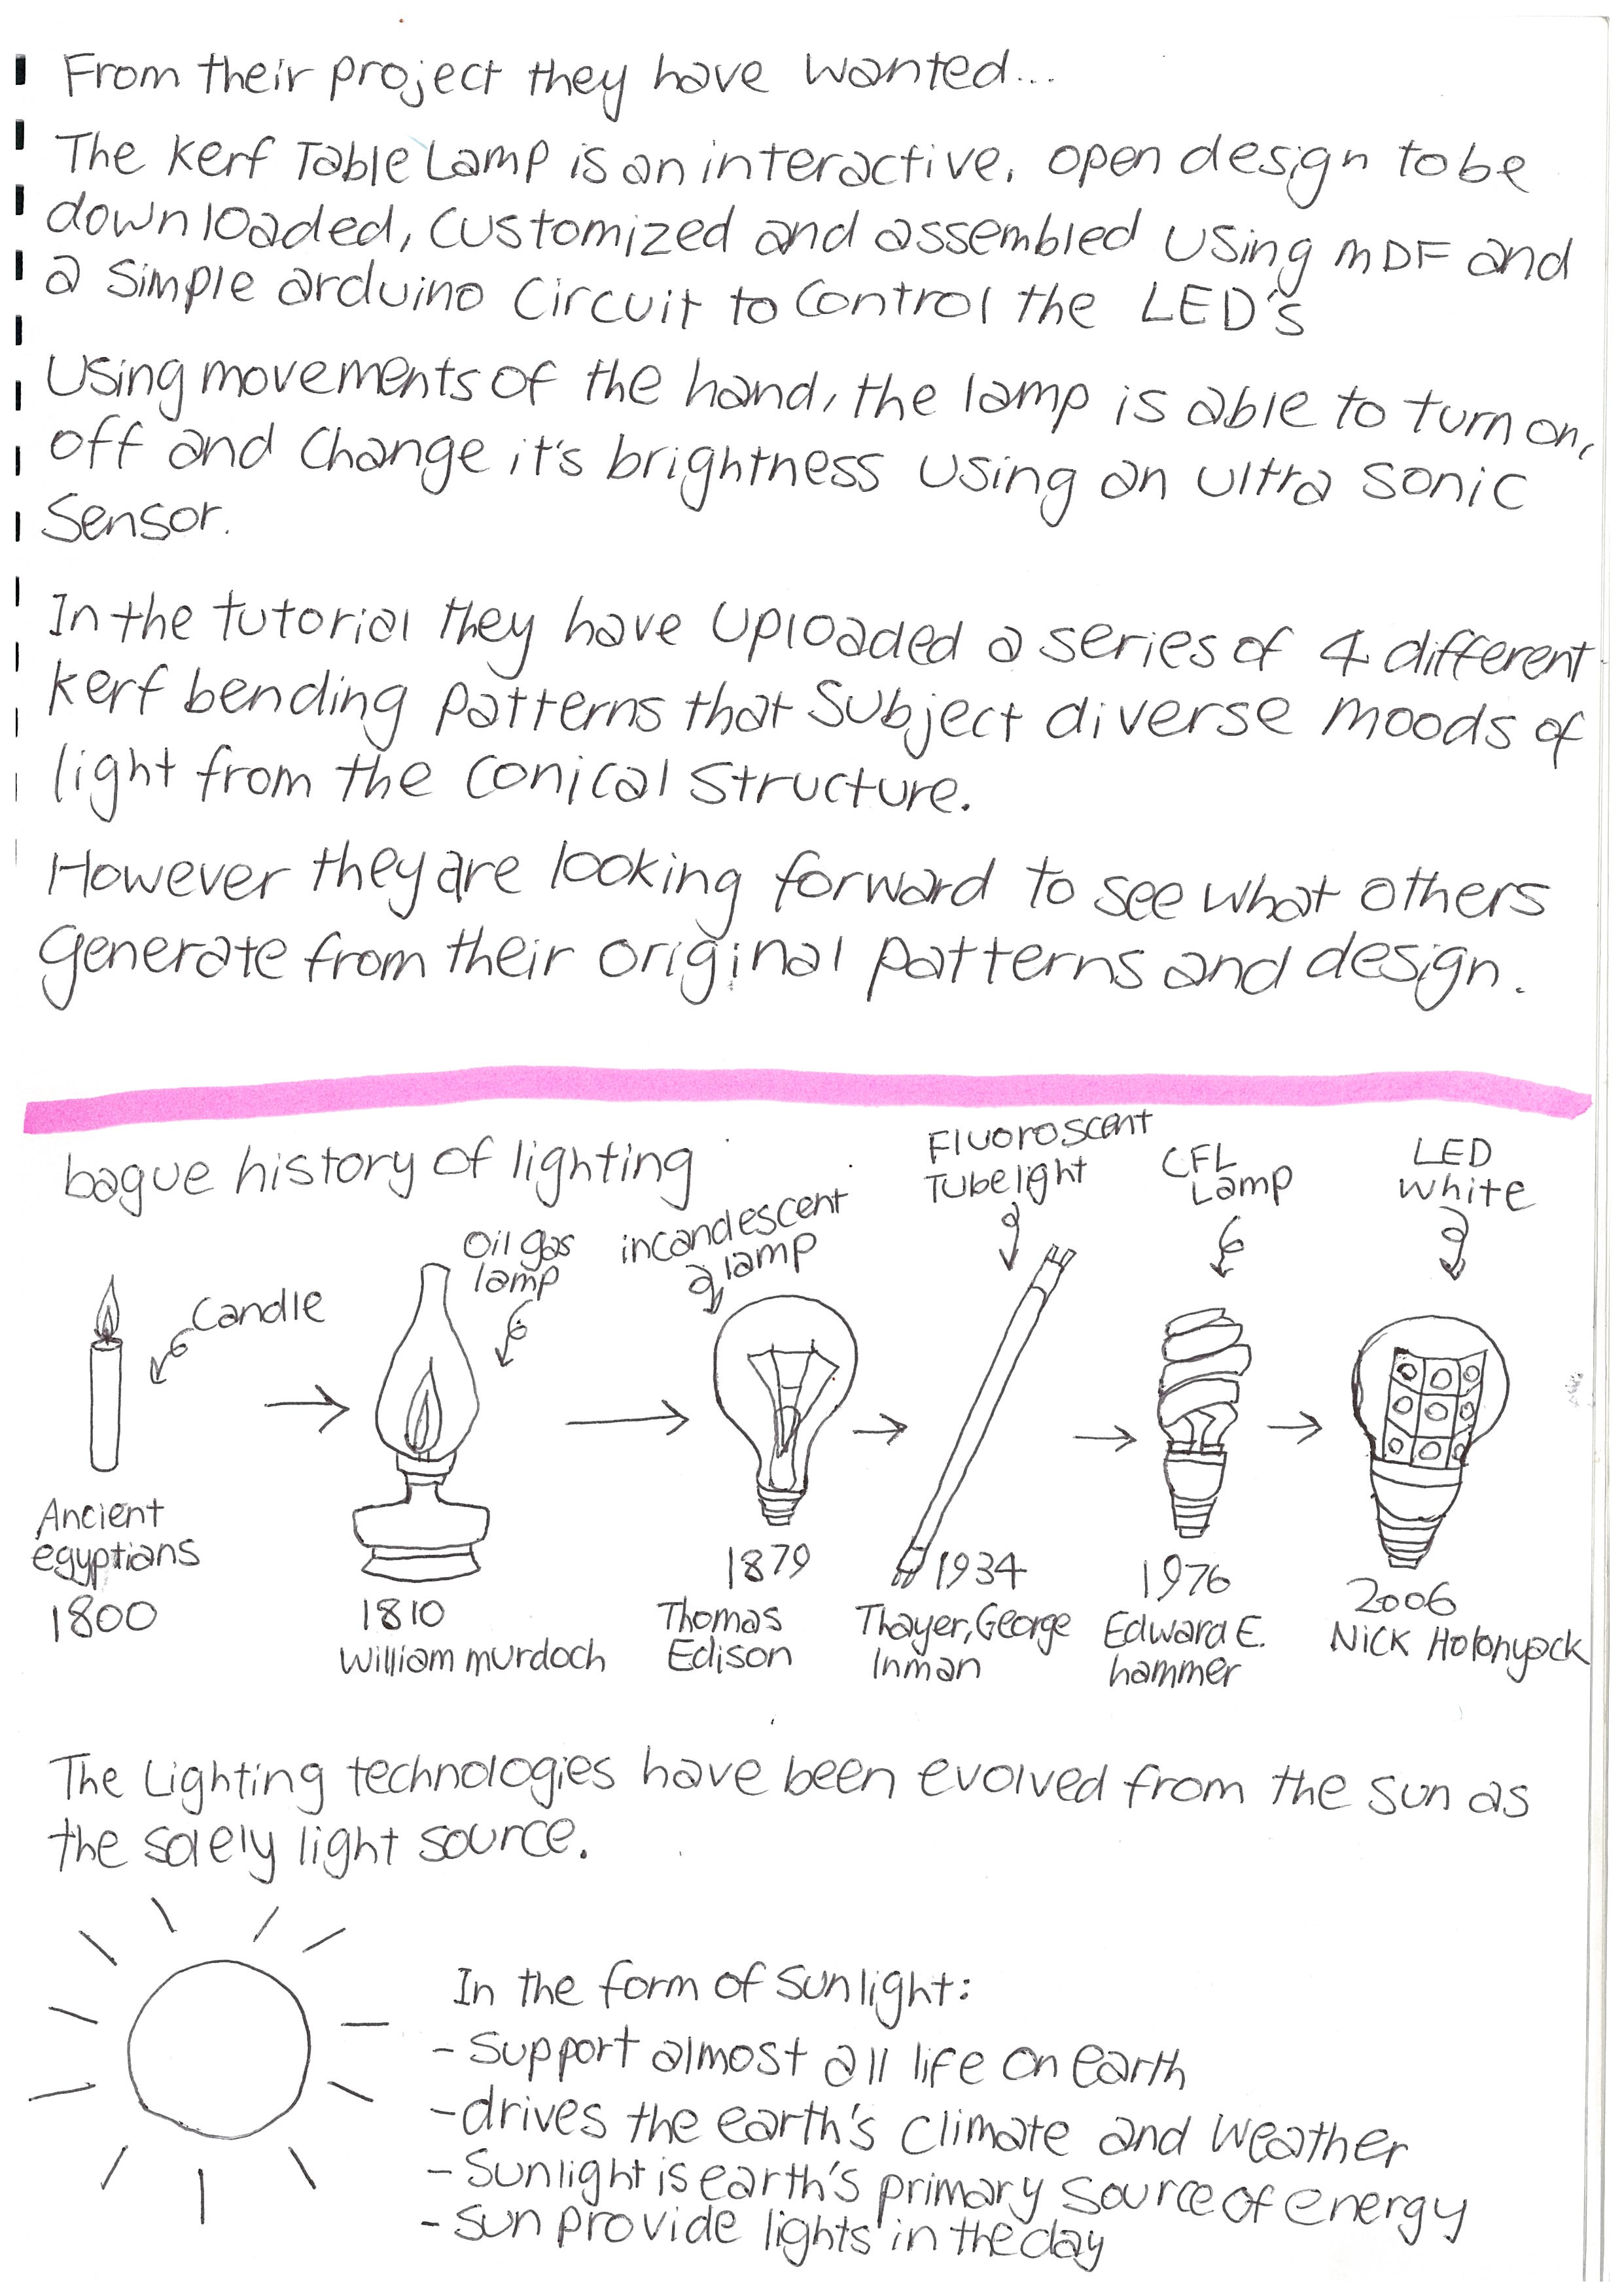 From their project they have wanted...
The Kerf Table Lamp is an interactive, open design to be
downloaded, customized and assembled using mDF and
a simple arduino circuit to control the LED's
Using movements of the hand, the lamp is able to turn on,
off and change it's brightness using an ultra sonic
sensor.
In the tutorial they have uploaded a series of 4 different
kerf bending patterns that subject diverse moods of
light from the conical structure.
However they are looking forward to see what others
generate from their original patterns and design.
bague history of lighting
Candle
Oil gas
lamp
incandescent
lamp
Fluoroscent
Tube light
CFL
Lamp
LED
White
Ancient
egyptians
1800
1810
William murdoch
1879
Thomas
Edison
1934
Thayer, George
Inman
1976
Edward E.
hammer
2006
Nick Holonyack
The Lighting technologies have been evolved from the sun as
the solely light source.
In the form of sunlight:
- Support almost all life on earth
- drives the earth's climate and weather
- Sunlight is earth's primary source of energy
- Sun provide lights in the day